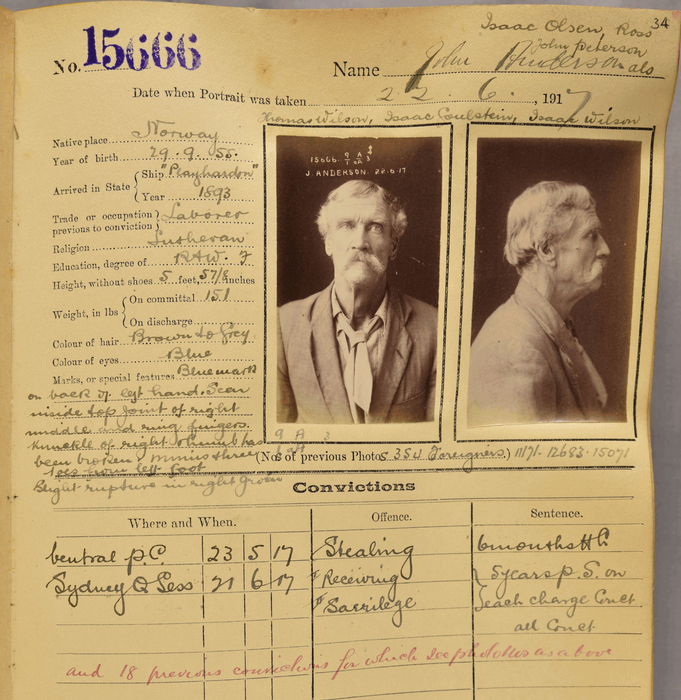 Isaac Olsen, Ross 34
No. 15666
John Peterson
Name John Anderson als
Date when Portrait was taken 22. 6. , 1917
Thomas Wilson, Isaac Coulstein, Isaac Wilson
Native place Norway
Year of birth 29.9.55.
Arrived in State { Ship "Playhardon"
Year 1893
Trade or occupation previous to conviction } Laborer
Religion Lutheran
Education, degree of R & W. F
Height, without shoes 5 feet, 5 7/8 inches
Weight, in lbs { On committal 151
On discharge
Colour of hair Brown to Grey
Colour of eyes Blue
Marks, or special features Blue mark
on back of left hand. Scar
inside top joint of right
middle and ring fingers.
Knuckle of right thumb has
been broken, minus three
toes from left foot
Slight rupture in right groin
15666. 9 A 3
J. ANDERSON. 22.6.17
(Nos of previous Photos 354 (Foreigners.) 11171-12683-15071
Convictions
Where and When. Offence. Sentence.
Central P.C. 23 5 17 Stealing 6 months H L
Sydney Q Sess 21 6 17 Receiving } 5 years p. S. on
Sacrilege each charge Conct
all Conct.
and 18 previous convictions for which see photo Nos as above